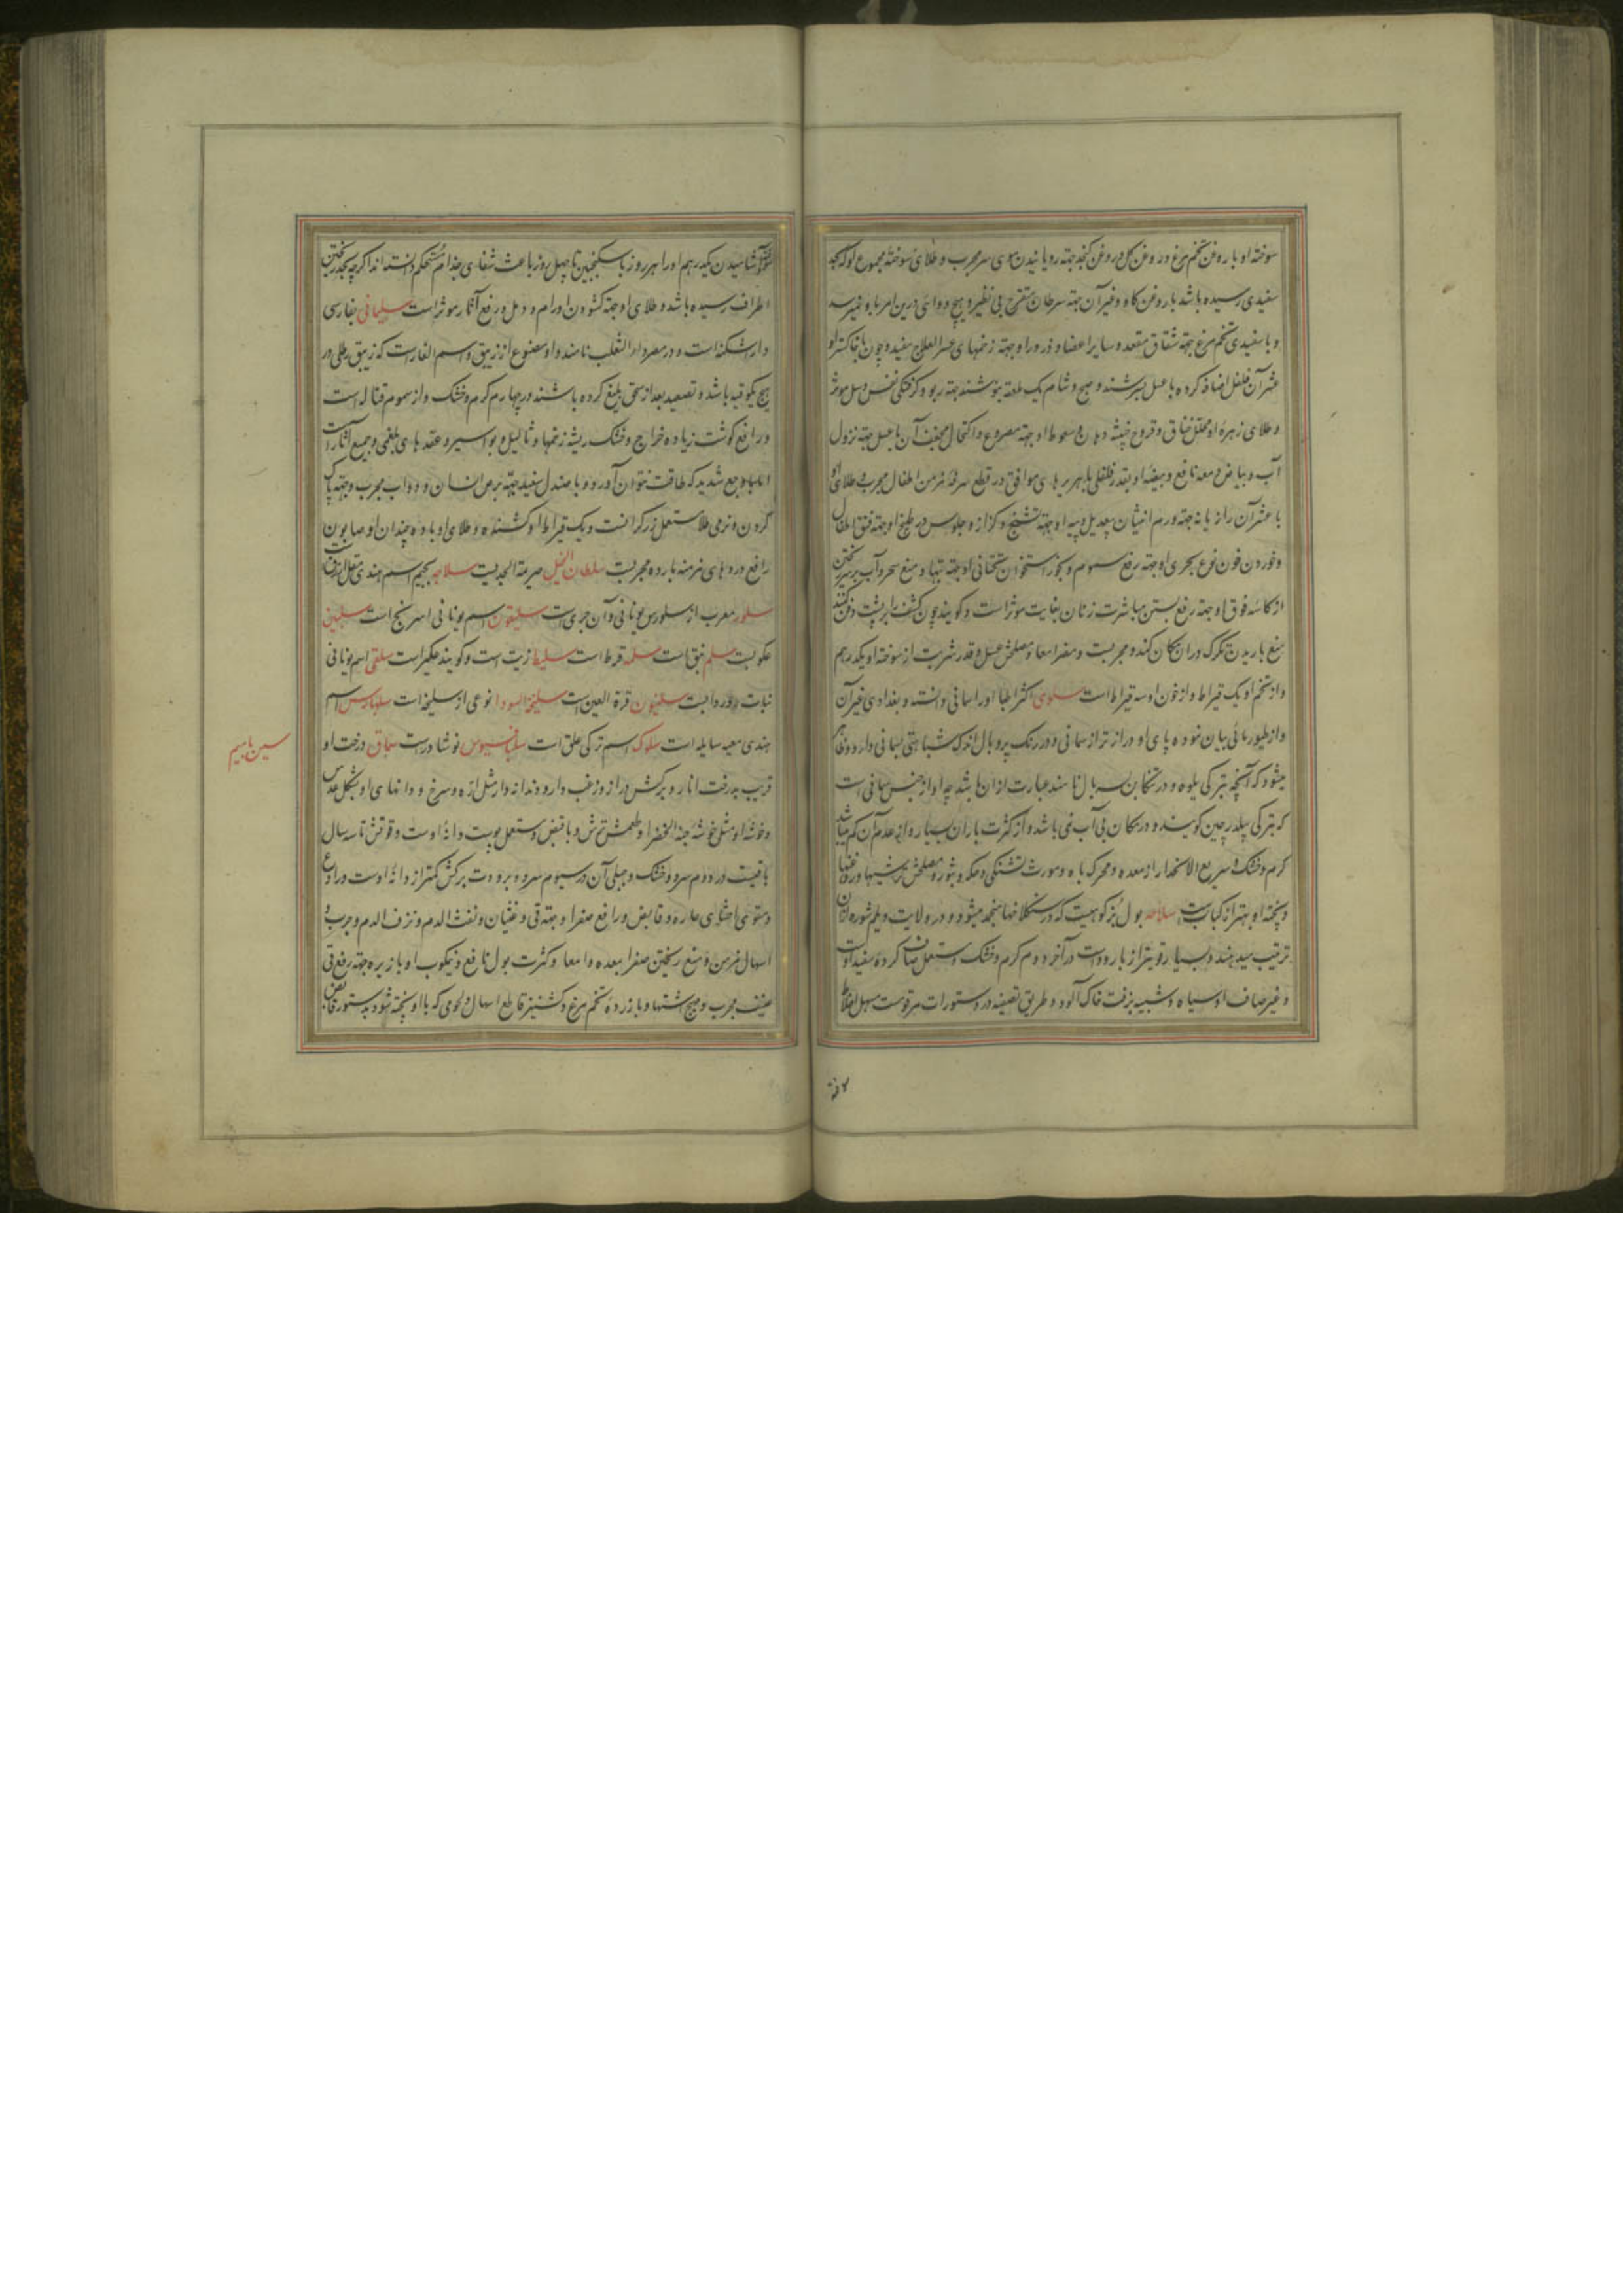 سوخته او با روغن تخم مرغ و روغن گل و روغن کنجد جهة رویانیدن موی سر مجرب و طلای سوخته مجموع او که بحد
سفیدی رسیده باشد با روغن کاو و غیر آن جهة سرطان متقرح بی نظیر و هیچ دوائی درین امر باو نمیرسد
و با سفیدی تخم مرغ جهة شقاق مقعده و سایر اعضا و ذرور او جهة زخمهای عسر العلاج مفید و چون با خاکستر او
عشر آن فلفل اضافه کرده با عسل بسرشند و صبح و شام یک ملعقه بنوشند جهة ربو و گرفتگی نفس و سل موثر
و طلای زهره او جهة خناق و قروح خبیثه دهان و سعوط او جهة مصروع و اکتحال مجفف آن با عسل جهة نزول
آب و بیاض و معه نافع و بیضه او بقدر فلفلی با هریره های موافق در قطع سرفه مزمن اطفال مجرب و طلای او
با عشر آن رازیانه جهة ورم انثیان بیعدیل و پیه او جهة تشنج و کزاز و جلوس در طبیخ او جهة فتق اطفال
و خوردن خون نوع بحری او جهة رفع سموم و بخور استخوان تحتانی او جهة تبها و منع سحر و آب بر سر ریختن
از کاسه فوق او جهة رفع بستن مباشرت زنان بغایت موثر است و گویند چون کشف را بر پشت دفن کنند
منع باریدن تگرگ در ان مکان کند و مجربست و مضر امعا و مصلحش عسل و قدر شربت از سوخته او یکدرهم
و از تخم او یک قیراط و از خون او سه قیراط است سلوی اکثر اطبا او را سمانی دانسته و بغدادی غیر آن
و از طیور مائی بیان نموده پای او دراز تر از سمانی و در رنگ پر و بال اندک شباهتی بسمانی دارد و ظاهر
میشود که آنچه بترکی یلوه و در تنکابن سه بال نامند عبارت از ان باشد چه او از جنس سمانی است
که بترکی بیلدرچین گویند و در مکان بی آب نمی باشد و از کثرت باران بسیار و از عدم آن کم میباشد
گرم و خشک و سریع الانحدار از معده و محرک باه و مورث تشنگی و حکه و بثور و مصلحش ترشیها و روغنها
و پخته او بهتر از کبابست سلاحه بول بز کوهیست که در سنگلاخها منجمد میشود و در ولایت دیلم شوره از ان
ترتیب میدهند و بسیار قویتر از بارود است در آخر دوم گرم و خشک و مستعمل صاف کرده سفید اوست
و غیر صاف او سیاه و شبیه بزفت خاک آلود و طریق تصفیه در دستورات مرقومست مسهل اخلاط
آشامیدن یکدرهم او را هر روز با سکنجبین تا چهل روز باعث شفای جذام مستحکم دانسته اند اگرچه بحد ریختن
اطراف رسیده باشد و طلای او جهة گشودن اورام و دمل و رفع آثار موثر است سلیمانی بفارسی
داراشکنه است و در مصر داء الثعلب نامند و او مصنوع از زیبق و سم الفار است که زیبق رطلی و در
پنج یکوقیه باشد و تصعید بعد از سحق بلیغ کرده باشند در چهارم گرم و خشک و از سموم قتال است
و رافع گوشت زیاده خراج و خشک ریشه زخمها و ثالیل و بواسیر و عقدهای بلغمی و جمیع آثار است
اما با وجع شدید که طاقت نتوان آورد و با صندل سفید جهة برص انسان و دواب مجرب و جهة پاک
کردن و نرمی طلا مستعمل زرگرانست و یک قیراط او کشنده و طلای او با ده چندان او صابون
رافع دردهای مزمنه بارده مجربست سلطان الجبل صریمة الجدیست سلاجه بجیم اسم هندی مقل ازرقست
سلور معرب از سلورس یونانی و آن جری است سلیقون اسم یونانی اسرنج است سلبین
عکوبست سلم نبق است سلمه قرط است سلیط زیت است و گویند عکبر است سلقی اسم یونانی
نبات سلیون قرة العین است سلیخة السودا نوعی از سلیخه است سلهارس اسم
هندی میعه سایله است سلوک اسم ترکی علق است سلیانسیوس نوشادر است سماق درخت او
قریب بدرخت انار و برگش دراز و زغب دار و دندانه دار مثل اره و سرخ و دانهای او بشکل عدس
و خوشه او مثل خوشه حبة الخضرا و طعمش ترش و با قبض و مستعمل پوست دانه اوست و قوتش تا سه سال
باقیست در دوم سرد و خشک و جبلی آن در سیوم سرد و برودت برگش کمتر از دانه اوست و رادع
و مقوی احشای حاره و قابض و رافع صفرا و جهة قی و غثیان و نفث الدم و نزف الدم و جرب و
اسهال مزمن و منع ریختن صفرا بمعده و امعا و کثرت بول نافع و نمکوب او با زیره جهة رفع قی
عنیف مجرب و مهیج اشتها و با زرده تخم مرغ و گشنیز قاطع اسهال و لحومی که با او پخته شود بدستور قابض
سین با میم